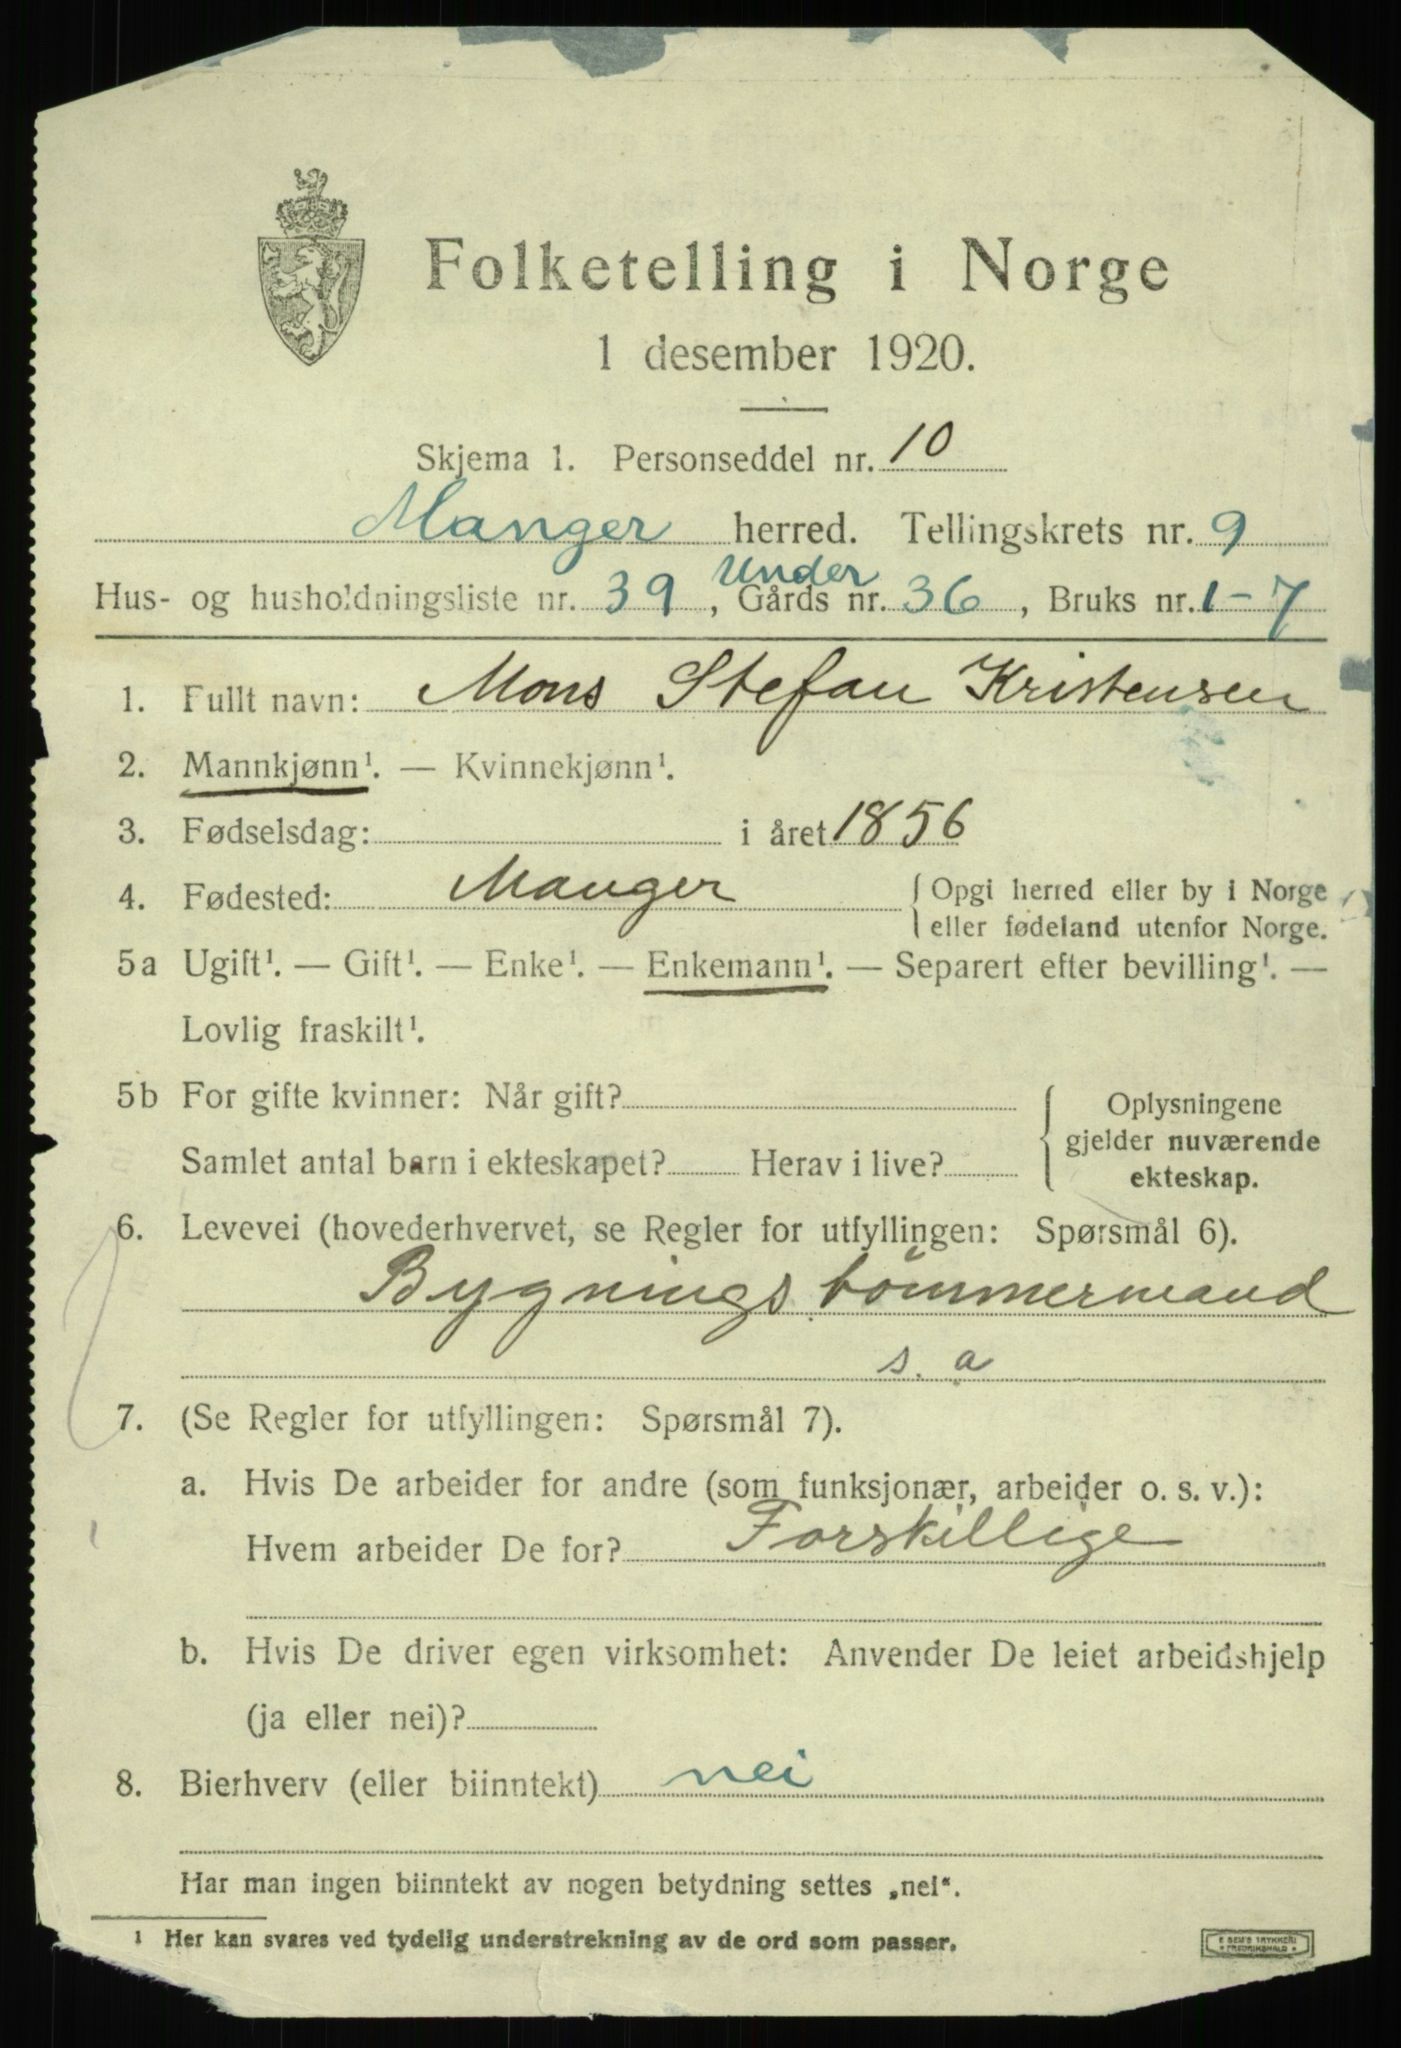 Folketelling i Norge
1 desember 1920.
Skjema 1. Personseddel nr. 10
Manger herred. Tellingskrets nr. 9
Under
Hus- og husholdningsliste nr. 39, Gårds nr. 36, Bruks nr. 1-7
1. Fullt navn: Mons Stefan Kristensen
2. Mannkjønn¹. — Kvinnekjønn¹.
3. Fødselsdag: i året 1856
4. Fødested: Manger { Opgi herred eller by i Norge
eller fødeland utenfor Norge.
5a Ugift¹. — Gift¹. — Enke¹. — Enkemann¹. — Separert efter bevilling¹. —
Lovlig fraskilt¹.
5b For gifte kvinner: Når gift? { Oplysningene
gjelder nuværende
Samlet antal barn i ekteskapet? Herav i live?
ekteskap.
6. Levevei (hovederhvervet, se Regler for utfyllingen: Spørsmål 6).
Bygningstømmermand
s. a
7. (Se Regler for utfyllingen: Spørsmål 7).
a. Hvis De arbeider for andre (som funksjonær, arbeider o. s. v.):
Hvem arbeider De for? Forskillige
b. Hvis De driver egen virksomhet: Anvender De leiet arbeidshjelp
(ja eller nei)?
8. Bierhverv (eller biinntekt) nei
Har man ingen biinntekt av nogen betydning settes „nei“.
¹ Her kan svares ved tydelig understrekning av de ord som passer.
E SEM'S TRYKKERI
* FREDRIKSHALD *